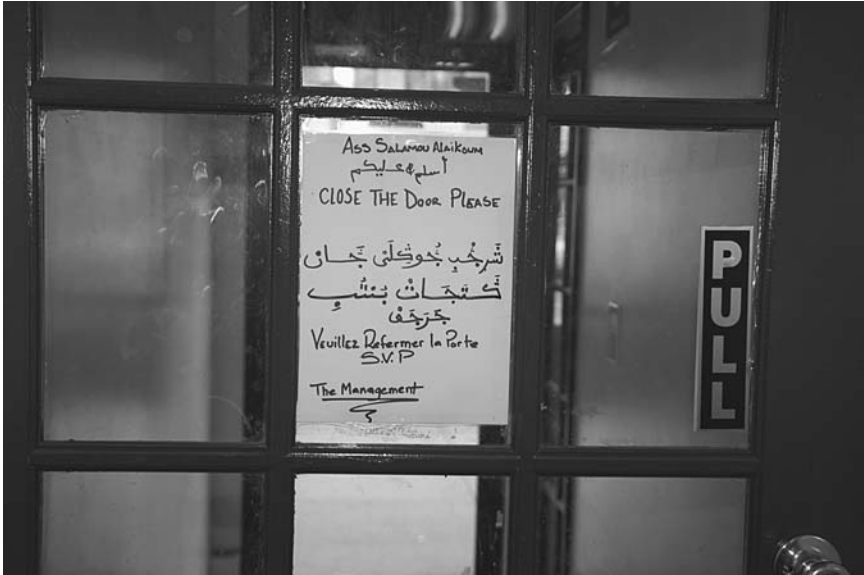 ASS SALAMOU ALAIKOUM
أسلم عليكم
CLOSE THE DOOR PLEASE
جَرَجَفْ
Veuillez Refermer la Porte
S.V.P
The Management
PULL